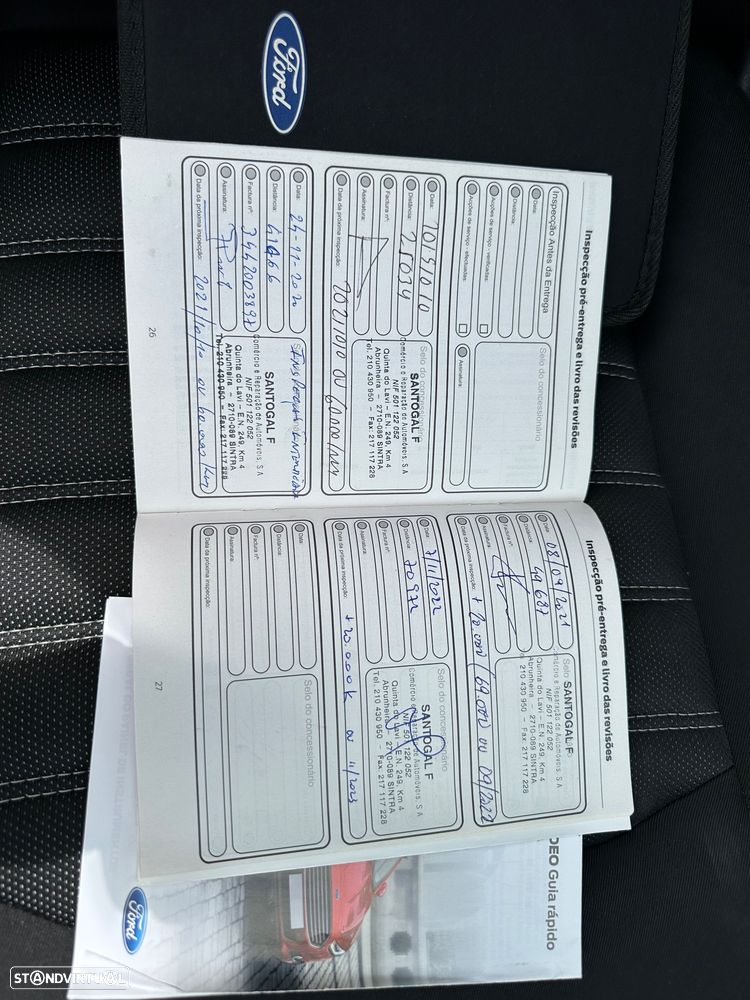 Ford
Inspecção pré-entrega e livro das revisões
Inspecção Antes da Entrega
Data:
Distância:
Acções de serviço - verificadas:
Acções de serviço - efectuadas:
Selo do concessionário
Assinatura:
Data:
Distância: 25034
Factura nº:
Assinatura:
Data da próxima inspecção:
Selo do concessionário
SANTOGAL F
Comércio e Reparação de Automóveis, S A
NIF 501 122 052
Quinta do Lavi – E.N. 249, Km 4
Abrunheira – 2710-089 SINTRA
Tel. 210 430 950 – Fax: 217 117 228
Data: 24-11-2020
Distância: 41466
Factura nº: 3442003897
Assinatura:
Data da próxima inspecção:
SANTOGAL F
Comércio e Reparação de Automóveis, S A
NIF 501 122 052
Quinta do Lavi – E.N. 249, Km 4
Abrunheira – 2710-089 SINTRA
Tel. 210 430 950 – Fax: 217 117 228
26
Inspecção pré-entrega e livro das revisões
Data: 08/09/2021
Distância: 49687
Factura nº:
Assinatura:
Data da próxima inspecção:
Selo
SANTOGAL F
Comércio e Reparação de Automóveis, S A
NIF 501 122 052
Quinta do Lavi – E.N. 249, Km 4
Abrunheira – 2710-089 SINTRA
Tel. 210 430 950 – Fax: 217 117 228
Data: 7/11/2022
Distância: 70922
Factura nº:
Assinatura:
Data da próxima inspecção: + 20.000k ou 11/2023
Selo do concessionário
SANTOGAL F
Comércio e Reparação de Automóveis, S A
NIF 501 122 052
Quinta do Lavi – E.N. 249, Km 4
Abrunheira – 2710-089 SINTRA
Tel. 210 430 950 – Fax: 217 117 228
Data:
Distância:
Factura nº:
Assinatura:
Data da próxima inspecção:
Selo do concessionário
27
DEO Guia rápido
Ford
STANDVIRTUAL